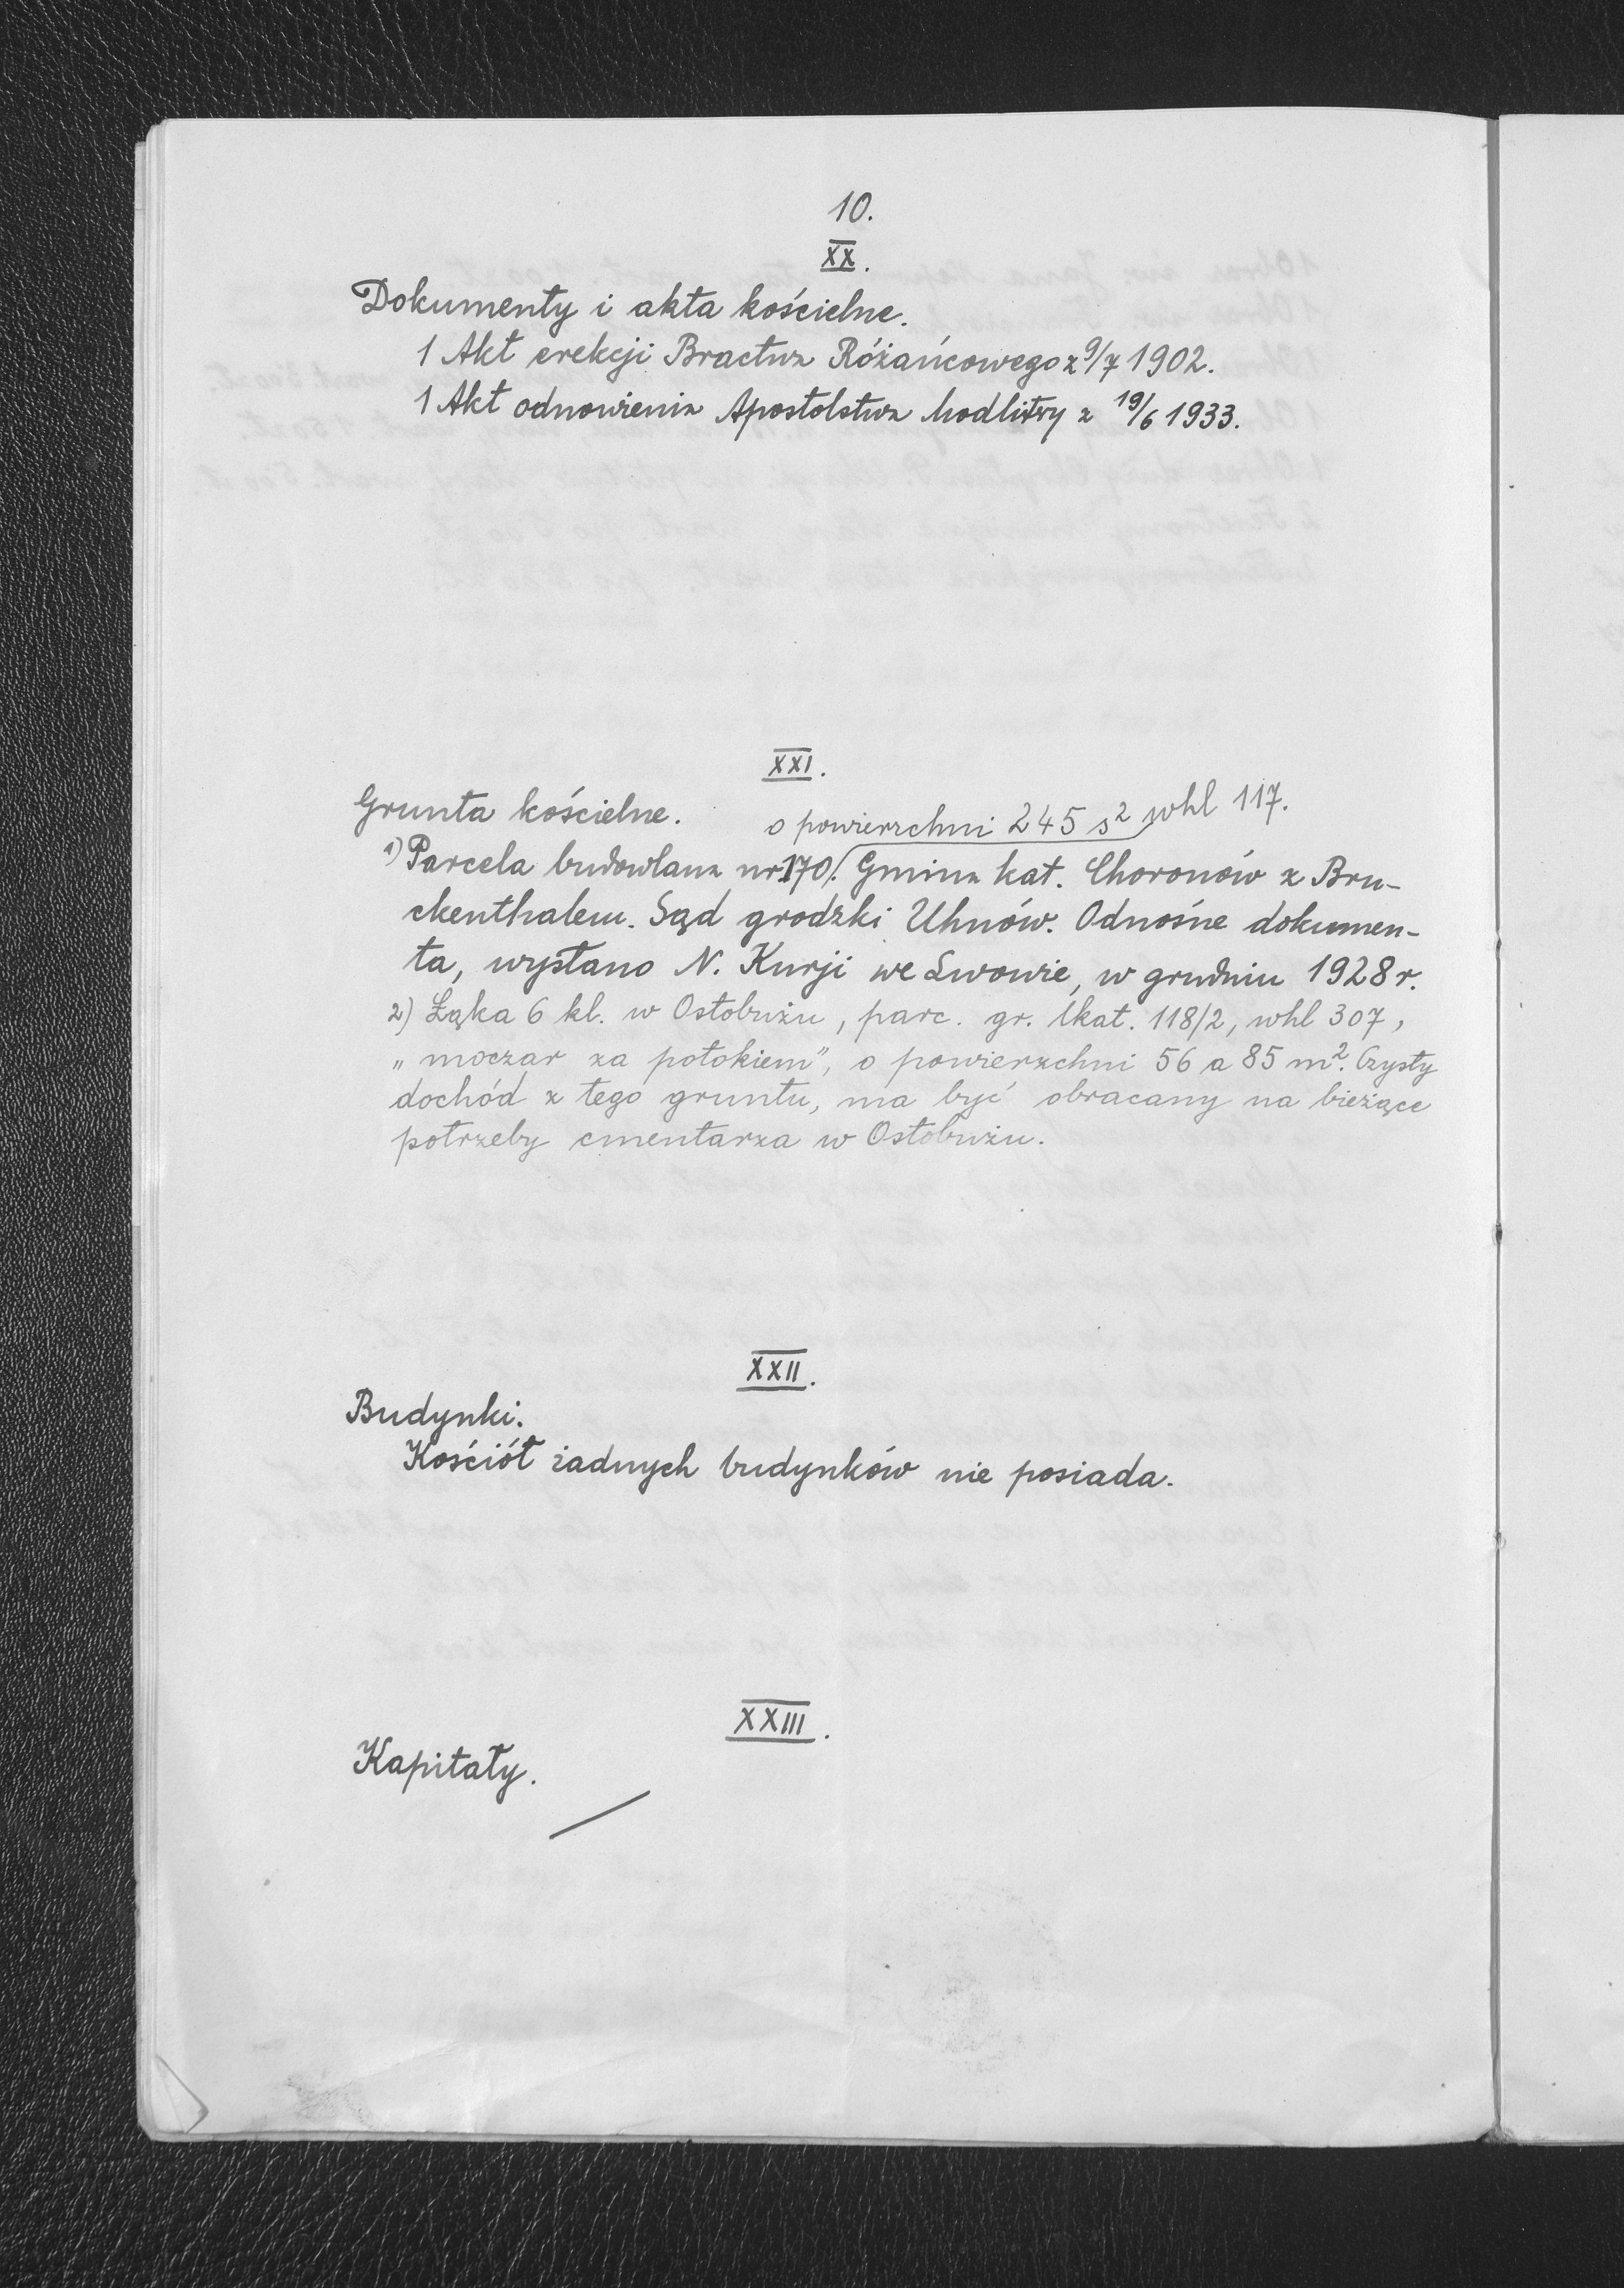 10.
XX.
Dokumenty i akta kościelne.
1 Akt erekcji Bractwa Różańcowego z 9/7 1902.
1 Akt odnowienia Apostolstwa Modlitwy z 19/6 1933.
XXI.
Grunta kościelne.
o powierzchni 245 s² whl 117.
1) Parcela budowlana nr 170. Gmina kat. Choronów z Bru-
ckenthalem. Sąd grodzki Uhnów. Odnośne dokumen-
ta, wysłano N. Kurji we Lwowie, w grudniu 1928 r.
2) Łąka 6 kl. w Ostobużu, parc. gr. lkat. 118/2, whl 307,
„moczar za potokiem”, o powierzchni 56 a 85 m². Czysty
dochód z tego gruntu, ma być obracany na bieżące
potrzeby cmentarza w Ostobużu.
XXII.
Budynki.
Kościół żadnych budynków nie posiada.
XXIII.
Kapitały.